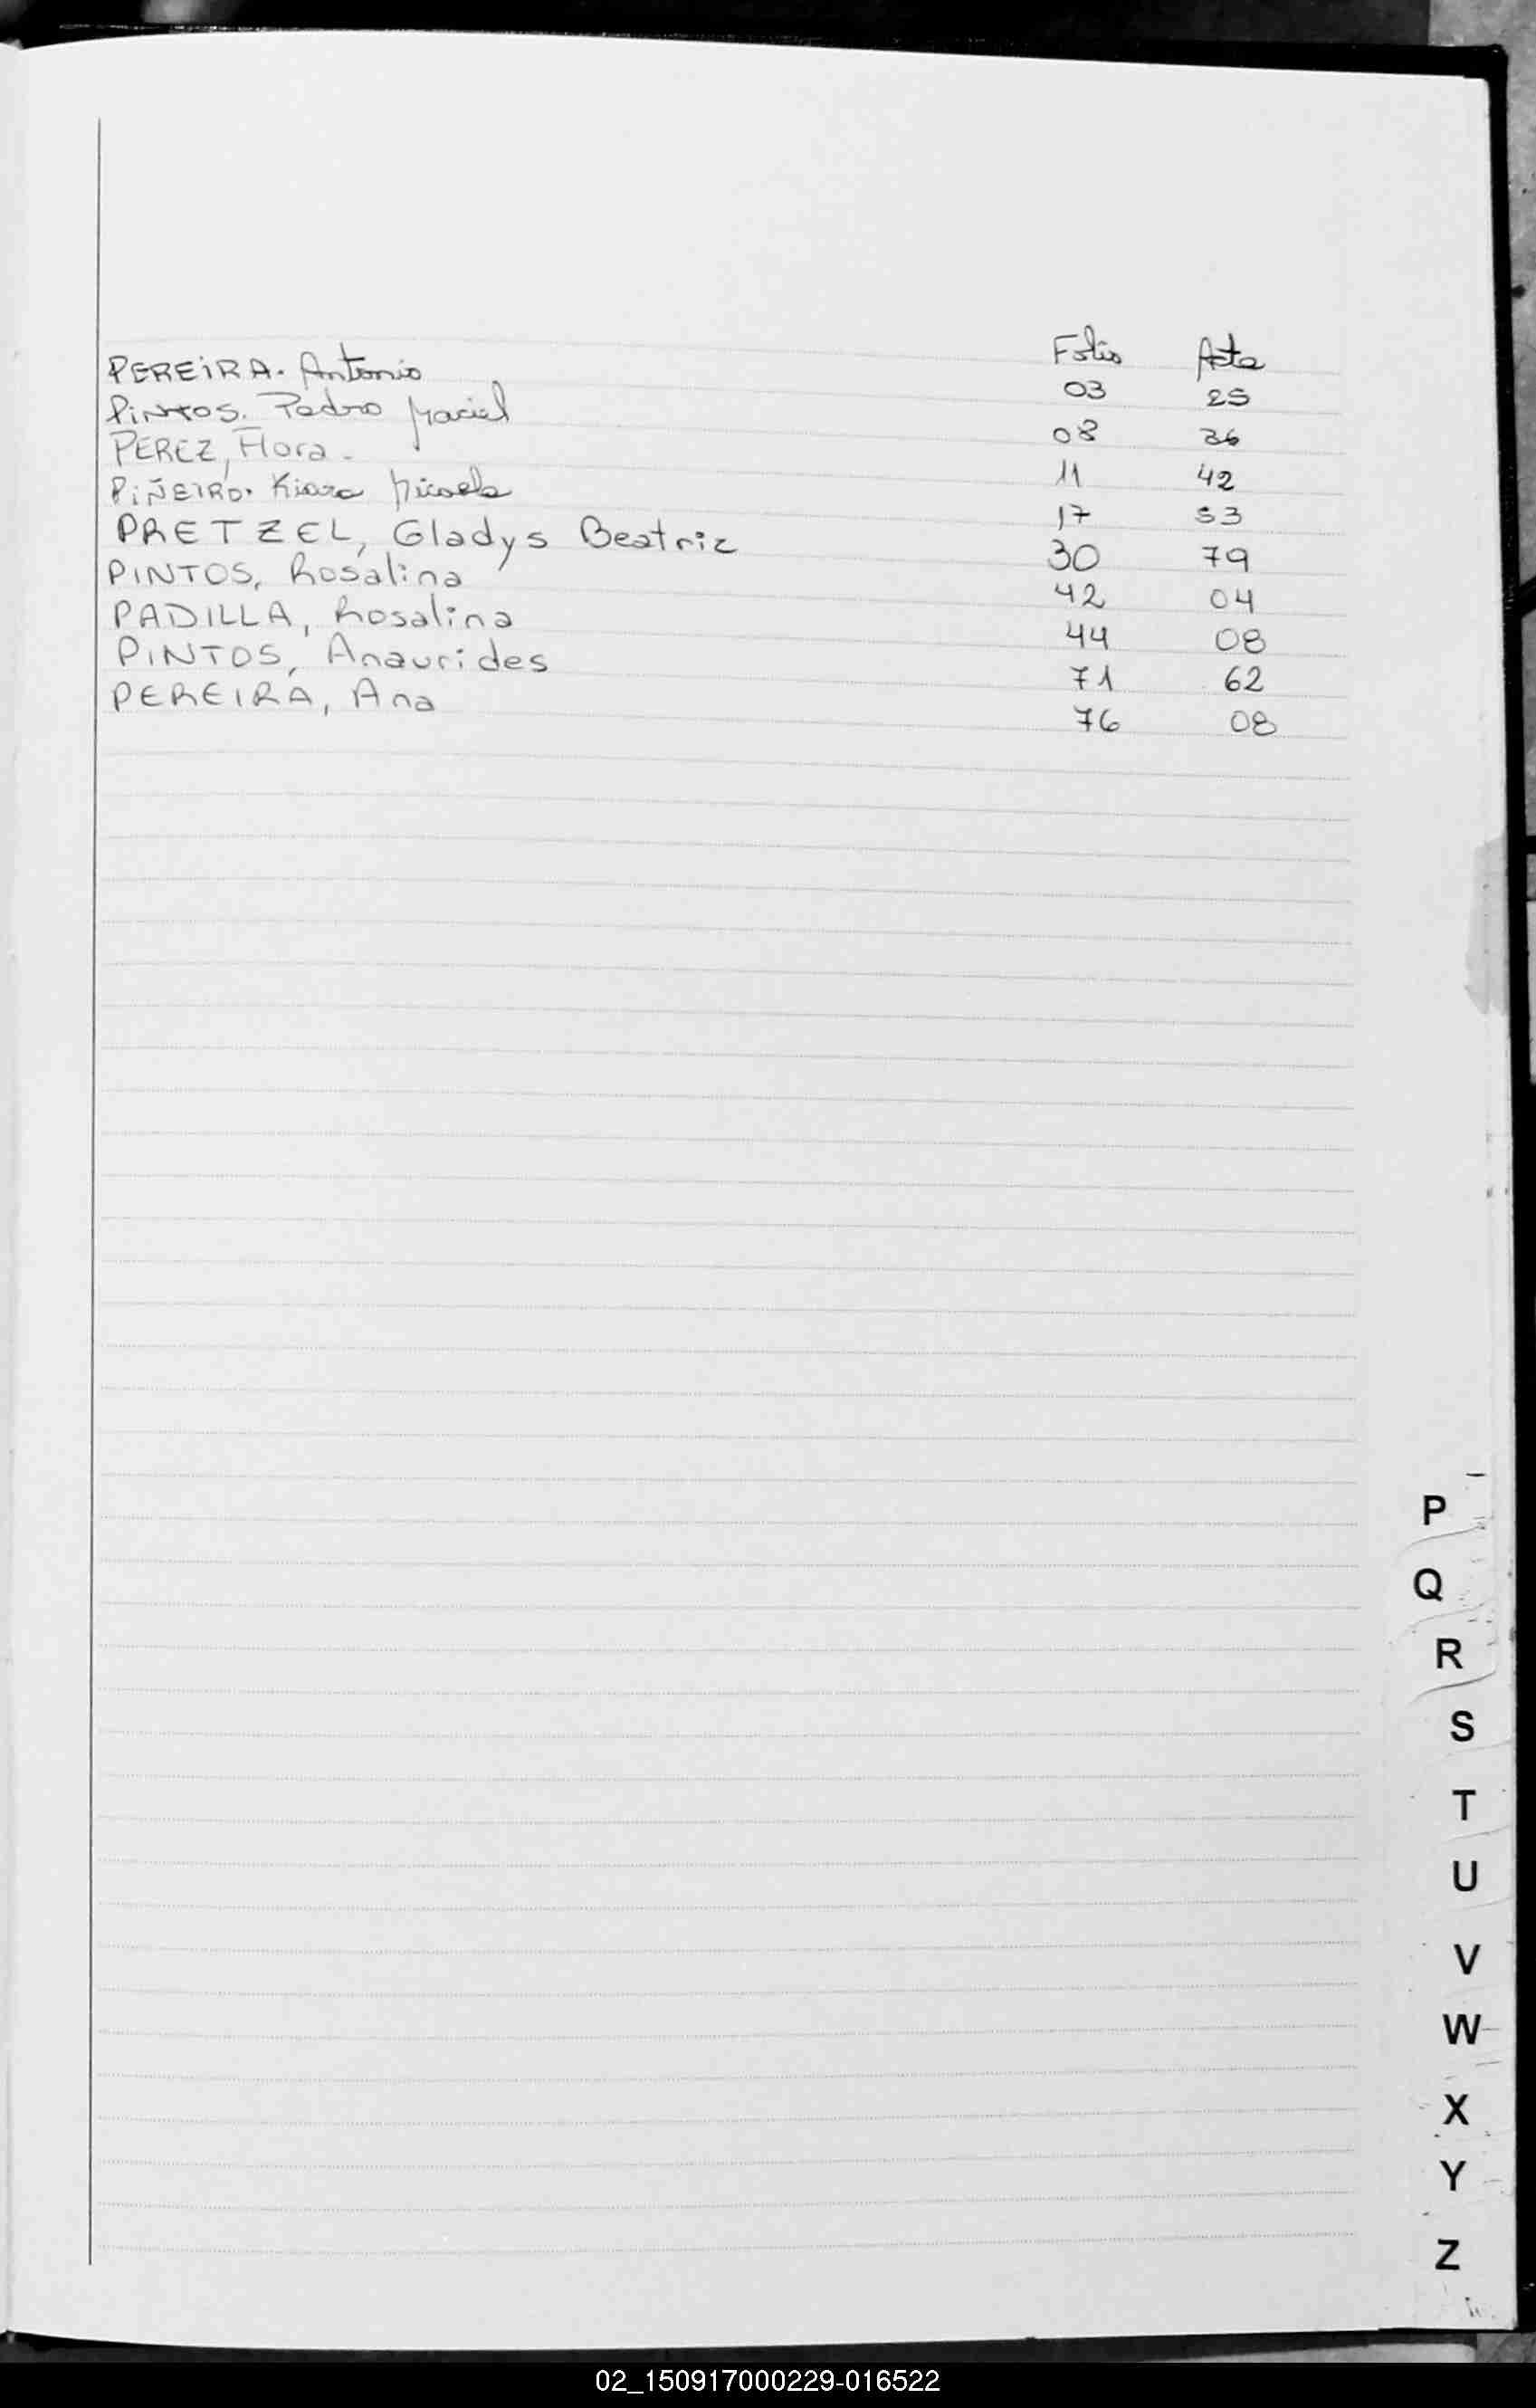 Folio Acta
PEREiRA. Antonio 03 25
PiNTOS. Pedro Maciel 08 36
PEREZ, Flora. 11 42
PiÑEIRO. Kiara Micaela 17 53
PRETZEL, Gladys Beatriz 30 79
PINTOS, Rosalina 42 04
PADILLA, Rosalina 44 08
PiNTOS, Anaurides 71 62
PEREIRA, Ana 76 08
P
Q
R
S
T
U
V
W
X
Y
Z
02_150917000229-016522